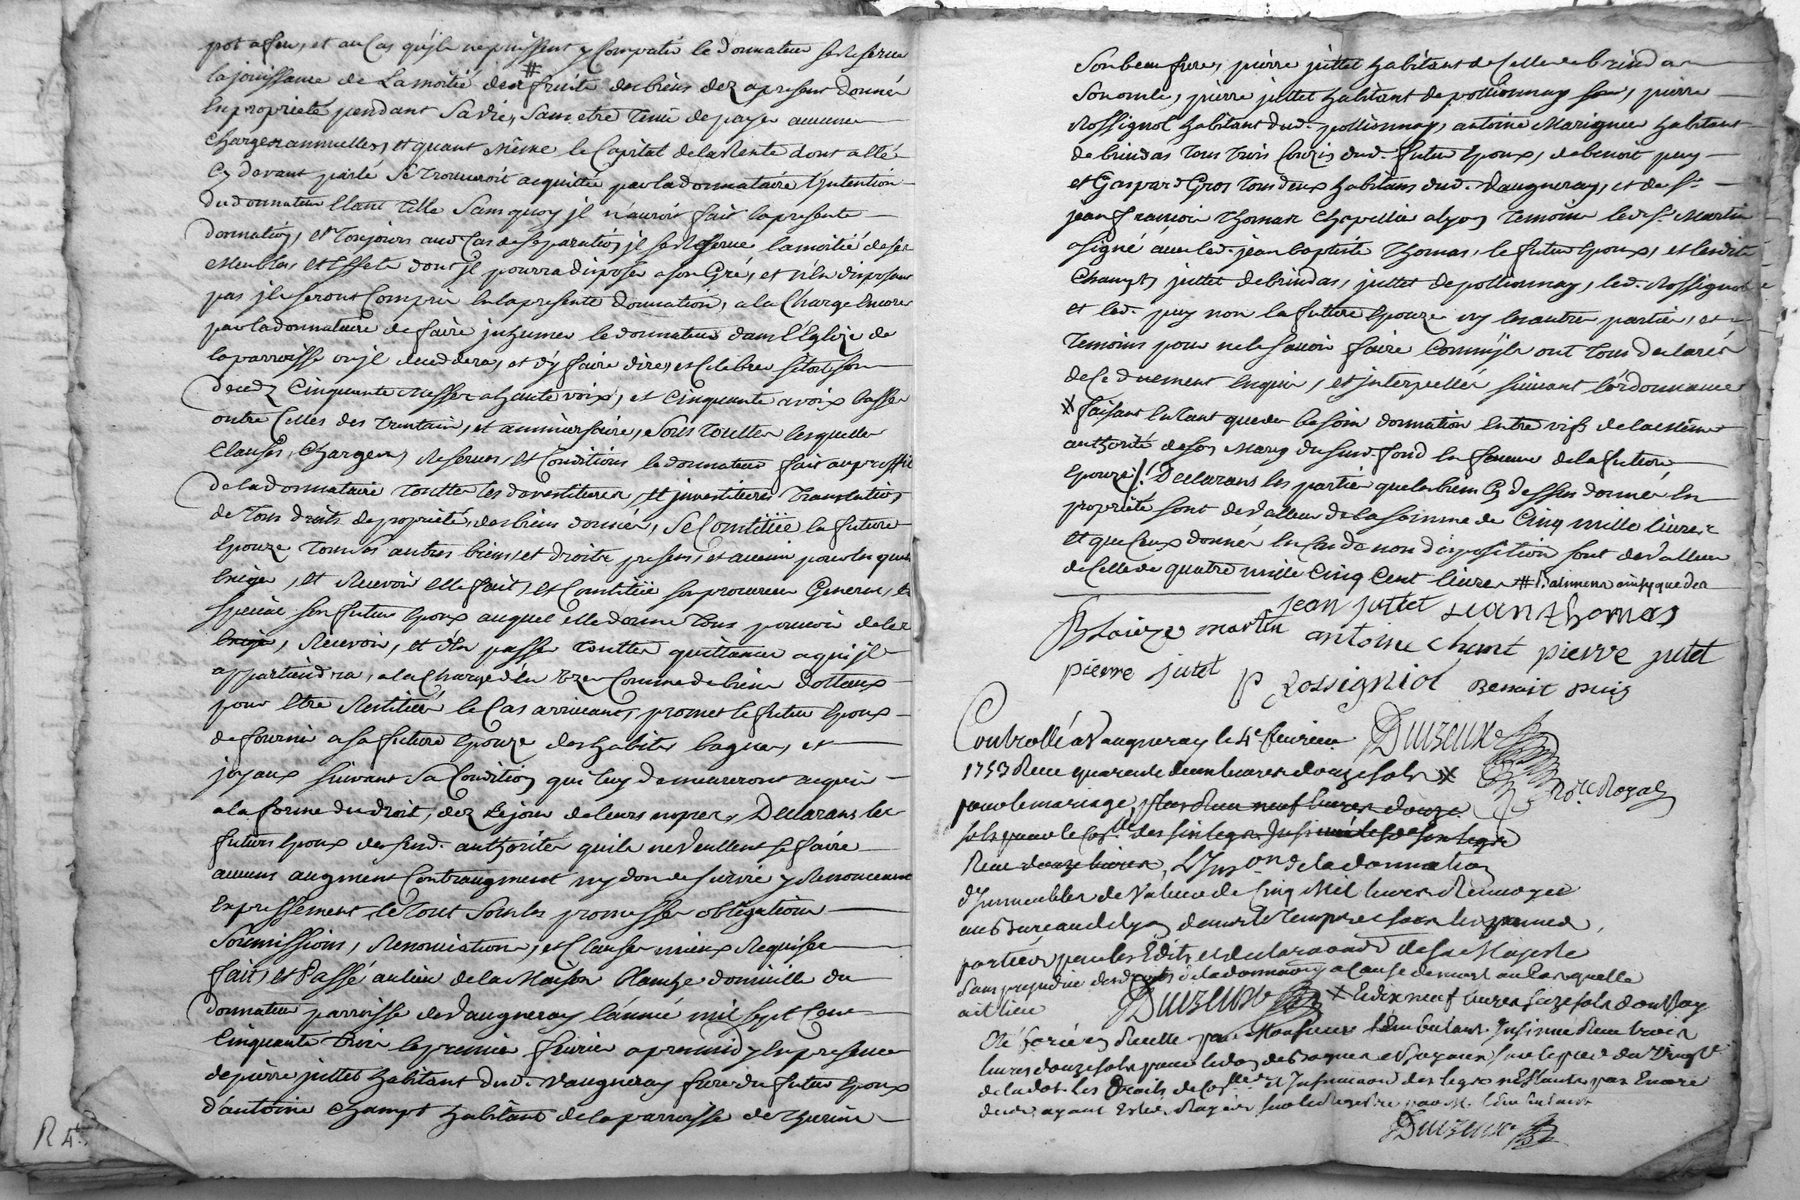 pot a feu, et au cas qu'ils ne puissent y compatir le donnateur se reserve
la jouissance de La moitié des # fruits des biens dez a present donnés
en proprieté pendant Sa vie, Sans etre tenu de payer aucunes
charges annuelles, et quant même le Capital de la Rente dont a été
Cy devant parlé Se trouveroit acquittée par la donnataire l'Intention
du donnateur Etant telle Sans quoy jl n'auroit fait la presente
donnation, et toujours aud. Cas de Separation jl se Reserve la moitié de ses
Meubles et Effets dont jl pourra disposer a son Gré, et n'En disposant
pas jls seront Compris En la presente donnation, a la Charge Encore
par la donnataire de faire jnhumer le donnateur dans l'Eglize de
la parroisse ou jl decedera, et d'y faire dire, et Celebrer sitot son
decedz Cinquante Messes a haute voix, et Cinquante a voix basse
outre Celles des Trentain, et anniversaire, Sous touttes lesquelles
Clauses, Charges, Reserves, et Conditions le donnateur fait au proffit
de la donnataire touttes les devestitures, et jnvestitures translation
de tous droits de proprieté, des biens donnés, Se Constitüe la future
Epouze tous ses autres biens, et droits presens, et avenir pour les quels
Exiger, et Recevoir elle fait, et Constitüe son procureur General, et
Special son futur Epoux auquel elle donne tous pouvoir de les
Exiger, Recevoir, et d'En passer touttes quittances a qui jl
appartiendra, a la Charge d'En Uzer Comme de biens dottaux
pour Etre Restitüés le Cas arrivant, promet le futur Epoux
de fournir a sa future Epouze des habits bagues, et
joyaux suivant Sa Condition qui luy demeureront acquis
a la forme du droit, dez le jour de leurs nopces, Declarans les
futurs Epoux desd. authorités qu'ils ne veullent se faire
aucuns augment Contraugment ny don de survie y Renonceant
Expressement, le tout Sous les promesses obligations
Soumissions, Renonciations, et Clauses mieux Requises
fait, et Passé au lieu de la Maison Blanche domicille du
donnateur parroisse de Vaugneray l'année mil sept Cent
Cinquante trois le premier fevrier apres midy En presence
de pierre juttet habitant dud. Vaugneray frere du futur Epoux
d'antoine champt habitant de la parroisse de thurins
R 4.
Son beau frere, pierre juttet habitant de Celle de brindas
Son oncle, pierre juttet habitant de pollionnay, pierre
Rossignol habitant dud. pollionnay, antoine Marignier habitant
de brindas tous trois Cousins dud. futur Epoux, de benoit puy
et Gaspard Gros tous deux habitans dud. Vaugneray, et de Sr.
jean francois thomas Chapellier a lyon temoins led. Sr. Martin
a signé avec led. jean baptiste thomas, le futur Epoux, et lesdits
Champt, juttet de brindas, juttet de pollionnay, led. Rossignol
et led. puy non la future Epouze ny les autres parties, et
temoins pour ne le savoir faire Comm'jls ont tous declarés
de Ce duement Enquis, et jnterpellés suivant l'ordonnance
X faisant En tant que de besoin donnation Entre vifs de la même
authorité de son Mary du susd. fond En faveur de la future
Epouze / Declarans les parties que les biens Cy dessus donnés En
proprieté sont de valleur de la somme de Cinq mille livres
et que Ceux donnés En Cas de non disposition sont de valleur
de Celle de quatre mille Cinq Cent livres # Batimens ainsy que des
jean juttet jean thomas
Blaize martin antoine chamt pierre jutet
pierre jutet p Rossigniol Benoit puis
Controllé a Vaugneray le 4e fevrier
1753 Receu quarente deux livres douze sols X
Duizeux
Nore. Royal
pour le mariage, plus Receu neuf livres douze
sols pour le
Receu douze livres, l'Inson. de la donnation
d'Immeubles de valeur de Cinq Mil livres Renvoyée
au Bureau de lyon dans le temps et sous les peines
portées par les Edits et declarations de Sa Majesté
Sans prejudice des droits de la donnation a Cause de mort au Cas quelle
ait lieu Duizeux X Et dix neuf livres seize sols dont Roy
Eté forcé En Recette par Monsieur l'ambulant
livres douze sols pour le don de Bagues et joyaux sur le pied du Vingt
de la dot. les Droits de et Insinuaon des legs
Duizeux